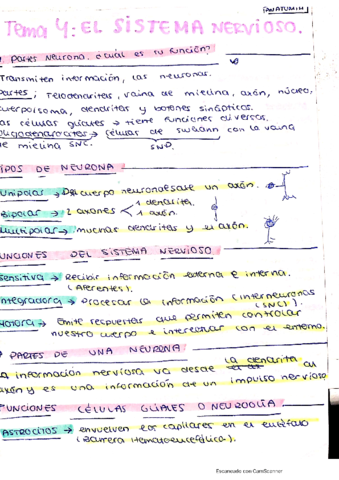 ANATOMIA
Tema 4: EL SISTEMA NERVIOSO.
1. Partes Neurona. ¿cuál es su función?
Transmiten información, las neuronas.
Partes; Telodendritas, vaina de mielina, axón, núcleo,
cuerpo/soma, dendritas y botones sinápticos.
las células gliales → tiene funciones diversas.
Oligodendrocitos → células de Swann con la vaina
de mielina SNC. SNP.
TIPOS DE NEURONA
Unipolar → Del cuerpo neuronal sale un axón.
Bipolar → 2 axones < 1 dendrita. 1 axón.
Multipolar → muchas dendritas y el axón.
FUNCIONES DEL SISTEMA NERVIOSO
Sensitiva → Recibir información externa e interna.
(Aferentes).
Integradora → procesar la información (interneuronas
(SNC)).
Motora → Emite respuestas que permiten controlar
nuestro cuerpo e interactuar con el entorno.
PARTES DE UNA NEURONA
La información nerviosa va desde la dendrita al
axón y es una información de un impulso nervioso
FUNCIONES CÉLULAS GLIALES O NEUROGLÍA
ASTROCITOS → envuelven los capilares en el encéfalo
(barrera Hematoencefálica).
Escaneado con CamScanner